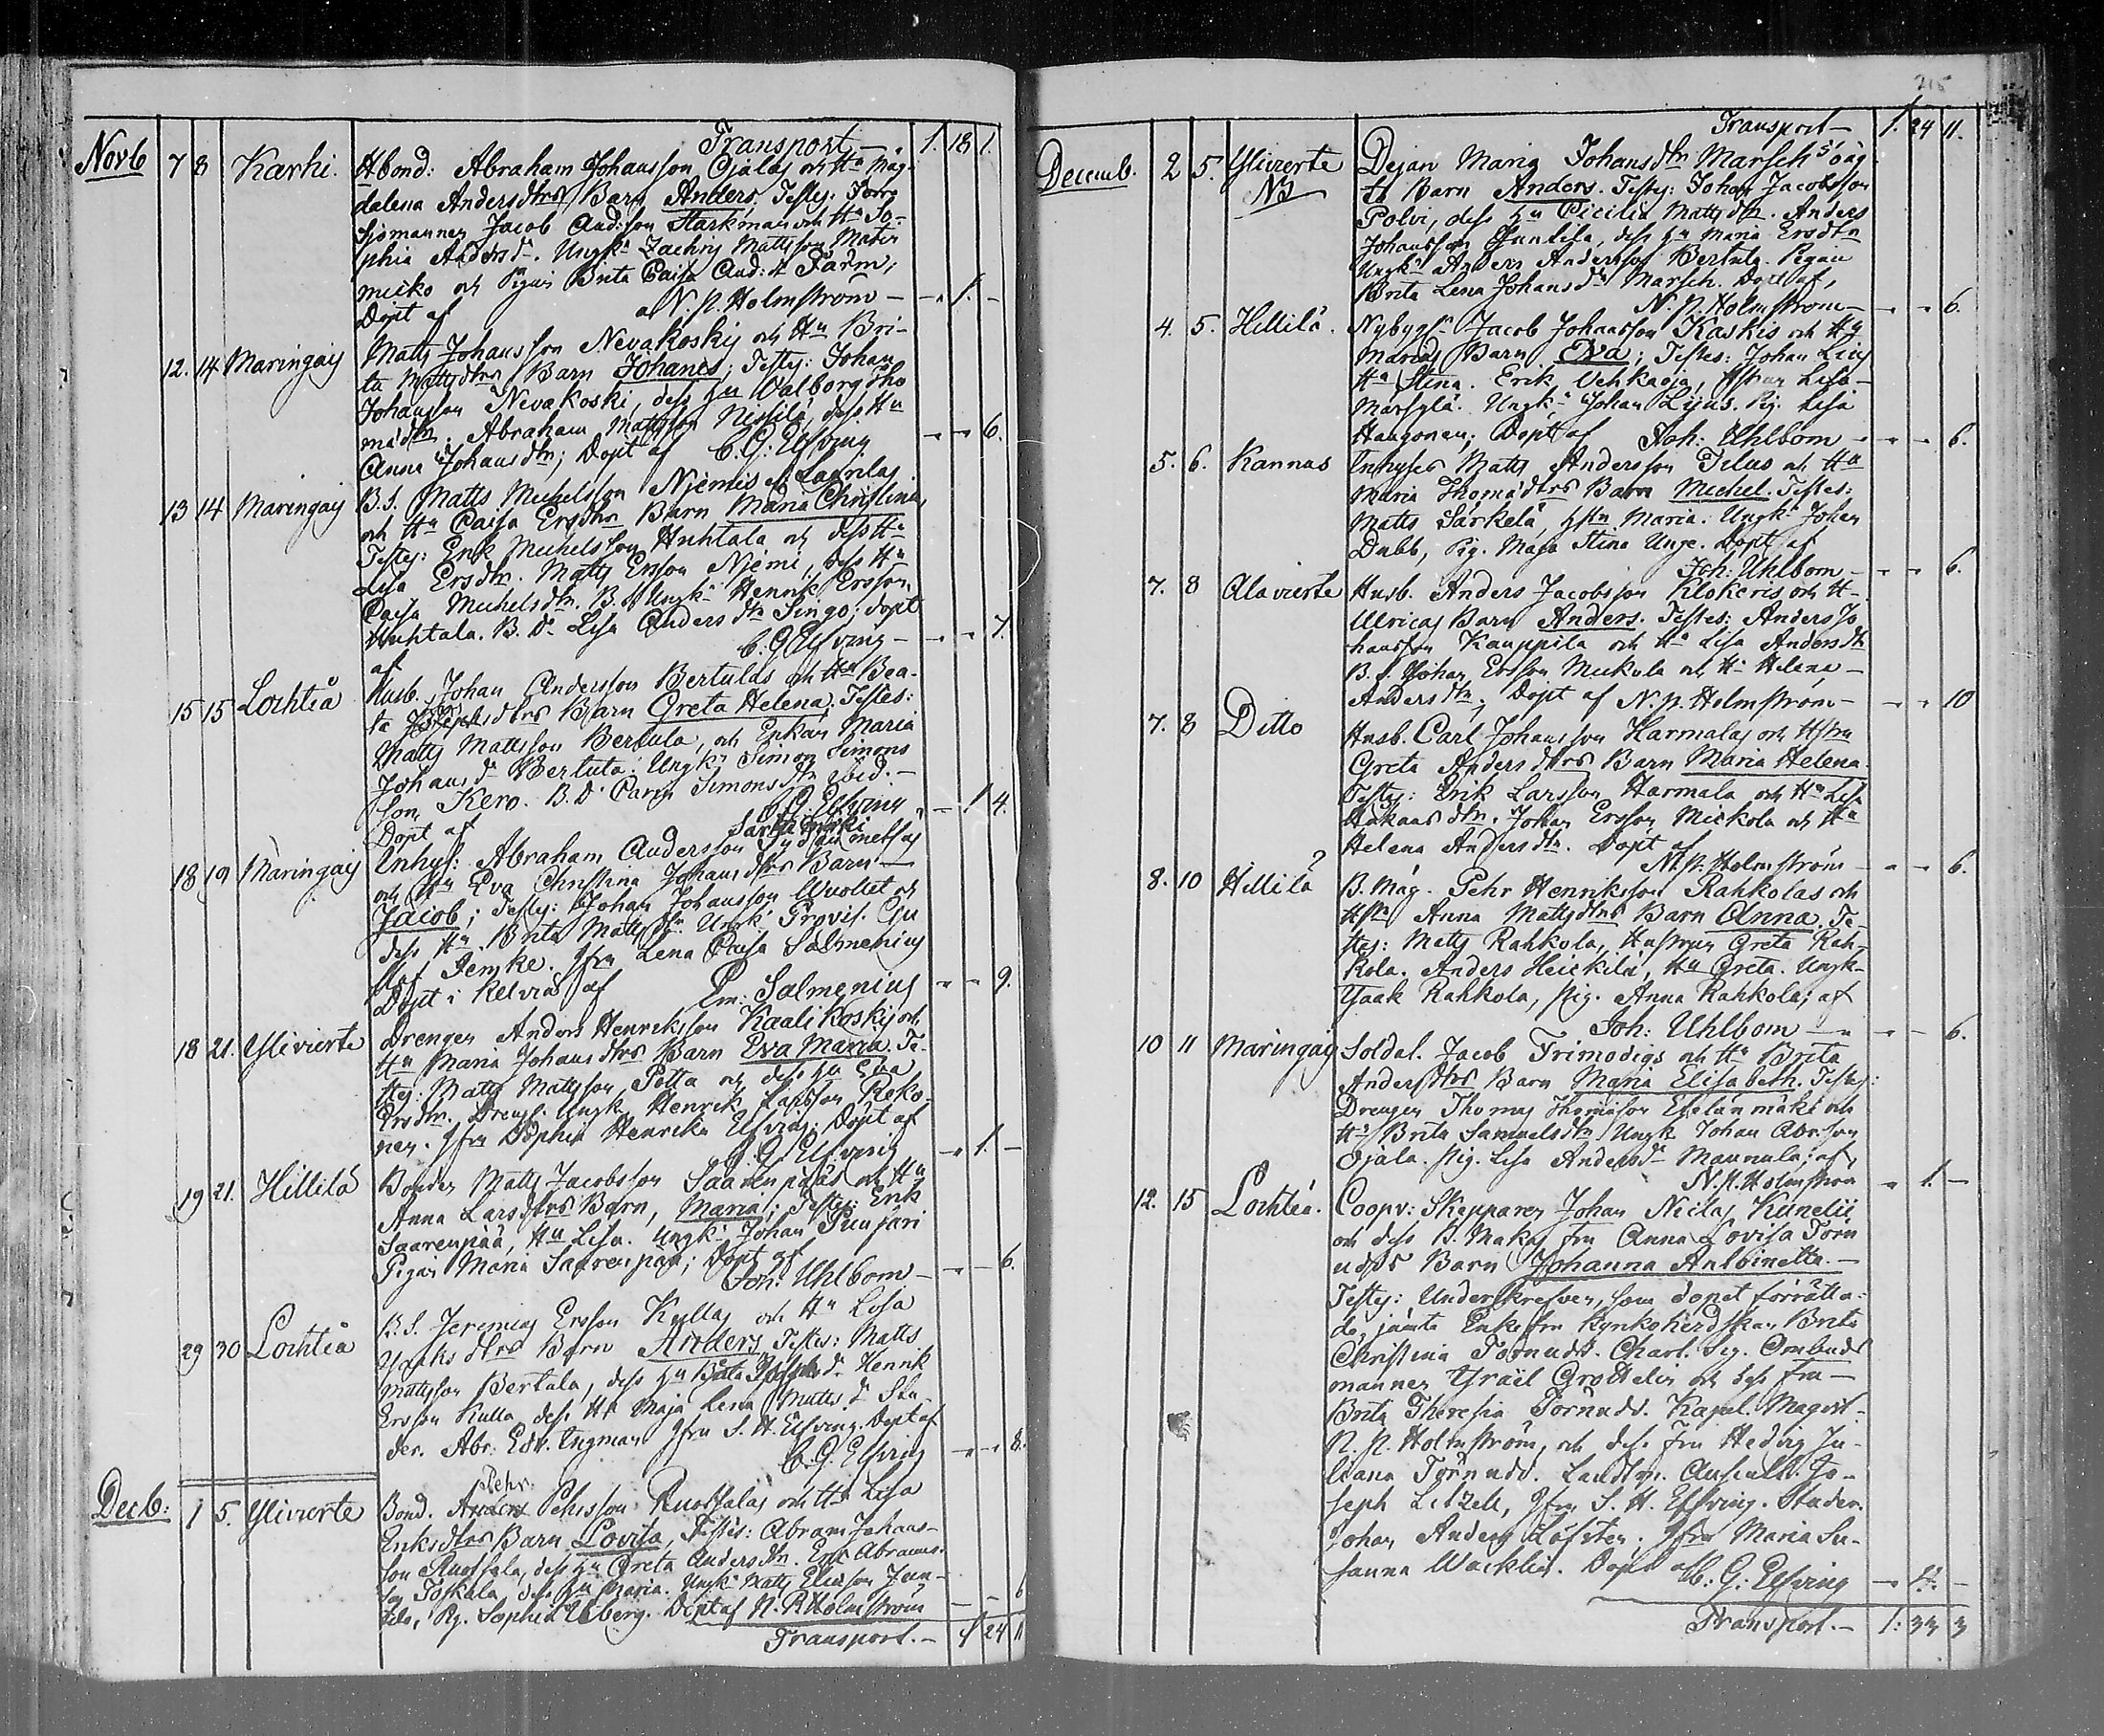 Transport — 1. 18 1.
Novb 7 8 Karhi. Hbond: Abraham Johansson Ojalas och Hu Mag-
dalena Andersdtrs Barn Anders. Testes: Torp
Sjömannen Jacob And:son Starkman och Hu So-
phia Andersdr. Ungk: Zachris Mattsson
och Pigan Brita Caisa And:dr
Döpt af N: P. Holmström — — 1. —
12. 14 Maringais Matts Johansson Nevakoskis och Hu Bri-
ta Mattsdtrs Barn Johanes; Testes: Johan
Johansson Nevakoski, dess Hu Valborg Tho
madtr. Abraham Mattsson Nissilä, dess Hu
Anna Johansdtr; Döpt af C. G: Elfving — — 6.
13 14 Maringais B. S. Matts Michelsson Njemis
och Hu Caisa Ersdtrs Barn Maria Christina,
Testes: Erik Michelsson Huhtala och dess Hu
Lisa Ersdtr. Matts Ersson Njemi, dess Hu
Caisa Michelsdtr. B. S. Ungk: Henrik Ersson
Huhtala. B. D. Lisa Andersdtr Singo; döpt
af C. G Elfving — — — 7.
15 15 Lochteå Husb. Johan Andersson Bertulas och Hu Bea-
ta Josephsdtrs Barn Greta Helena. Testes:
Matts Mattsson Bertula, och Enkan Maria
Johansdr Bertula. Ungk: Simon Simons
son Kero. B. D. Simonsdtr ibid. —
Döpt af C. G. Elfving — — 1 4.
18 19 Maringais Inhys: Abraham Andersson
och Hu Eva Christina Johansdtrs Barn —
Jacob; Testes: Johan Johansson och
dess Hu Brita Mattsdtr. Ungk: Provis. Gu
staf Jemke. Jfru Lena Caisa Salmenius
Döpt i Kelviå af Em: Salmenius — — 9.
18 21. Ylivierte Drengen Anders Henriksson Kaalikoskis och
Hu Maria Johansdtrs Barn Eva Maria. Te-
stes: Matts Mattsson Potta och dess Hu Eva
Ersdtr. Dreng: Ungk Henrik Larsson Reko-
nen. Jfru Sophia Henrika Elfving; Döpt af
C. G. Elfving — 1. —
19 21. Hillilä Bonden Matts Jacobsson Saarenpääs och Hu
Anna Larsdtrs Barn, Maria; Testes: Erik
Saarenpää, Hu Lisa. Ungk: Johan Junjari
Pigan Maria Saarenpää; Döpt af
Joh: Uhlbom — — — 6.
29 30 Lochteå B. S. Jeremias Ersson Kullas och Hu Lisa
dtrs Barn Anders, Testes: Matts
Mattsson Bertula, dess Hu Beata Josephsdr Henrik
Ersson Kulla, dess Hu Maja Lena Mattsdr Stu-
der. Abr: Edv. Ingman Jfru S. H. Elfving. Döpt af
C. G. Elfving — — 8.
Decb: 1 5. Ylivierte Bond. Anders Pehr Pehrsson Ruotsalas och Hu Lisa
Eriksdtrs Barn Lovisa, Testes: Abram Johans-
son Ruotsala, dess Hu Greta Andersdtr. Erik Abrams-
son Toskala, dess Hu Maria. Ungk: Matts Eliasson Jun-
tila, Pig. Sophia Ulberg. Döpt af N. P. Holmström — — 6
Transport. — 1 24 11
215
Transport — 1. 24 11.
Decemb. 2 5. Ylivierte Dejan Maria Johansdtr Marsch oäg-
NB ta Barn Anders. Testes: Johan Jacobsson
Polvi, dess Hu Cicilia Mattsdtr. Anders
Johansson Juntila, dess Hu Maria Ersdtr
Ungk: Anders Andersson Bertula. Pigan
Brita Lena Johansdr Marsch. Döpt af,
N. P. Holmström — — — 6.
4. 5. Hillilä. Nybygg: Jacob Johansson Kaskis och Hu
Marias Barn Eva; Testes: Johan Lius
Hu Stina. Erik Vehkaoja, Hstrun Lisa —
Märsylä. Ungk: Johan Lius. Pig. Lisa
Haugonen; Döpt af Joh: Uhlbom — — — 6.
5. 6. Kannas Inhyses Matts Andersson Jelus och Hu
Maria Thomädtrs Barn Michel. Testes:
Matts Särkelä, Hstru Maria. Ungk: Johan
Dubb, Pig. Maja Stina Unge. Döpt af
Joh: Uhlbom — — — 6.
7. 8 Alavierte Husb. Anders Jacobsson Klokeris och Hu
Ulricas Barn Anders. Testes: Anders Jo
hansson Kauppila och Hu Lisa Andersdtr
B. S. Johan Ersson Mickola och Hu Helena —
Andersdtr; Döpt af N. P. Holmström — — — 10
7. 8 Ditto Husb. Carl Johansson Harmalas och Hstru
Greta Andersdtrs Barn Maria Helena.
Testes: Erik Larsson Harmala och Hu Lisa
Håkansdtr. Johan Ersson Mickola och Hu
Helena Andersdtr. Döpt af
N. P. Holmström — — — 6.
8. 10 Hillilä B. Måg. Pehr Henriksson Rahkolas och
Hstru Anna Mattsdtrs Barn Anna. Te-
stes: Matts Rahkola, Hustrun Greta Rah-
kola. Anders Heickilä, Hu Greta. Ungk-
Isaak Rahkola, Pig. Anna Rahkola; af
Joh: Uhlbom — — — 6.
10 11 Maringais Soldat. Jacob Frimodigs och Hu Brita
Andersdtrs Barn Maria Elisabeth. Testes:
Drengen Thomas Thomasson och
Hu Brita Samuelsdtr Ungk Johan Abr:son
Ojala. Pig. Lisa Andersdr Maunula; af,
N. P. Holmström — 1. —
12. 15 Lochteå. Coopv: Skepparen Johan Niclas Kunelii
och dess K. Makas fru Anna Lovisa Törn
udds Barn Johanna Antoinetta. —
Testes: Underskrefven, som dopet förrätta-
de, jämte Enkefru Kyrkoherdskan Brita
Christina Törnudd. Charl. Seg. Ombuds
mannen Israël Grotelin och dess fru —
Brita Theresia Törnudd. Kapel. Magist.
N. P. Holmström, och dess Fru Hedvig Ju-
liana Törnudd. Landtm. Auscult. Jo-
seph Litzell, Jfru S. H. Elfving. Studer.
Johan Anders Löfsten. Jfru Maria Su-
sanna Wacklin. Döpt af C. G: Elfving — —
Transport. — 1: 33 3